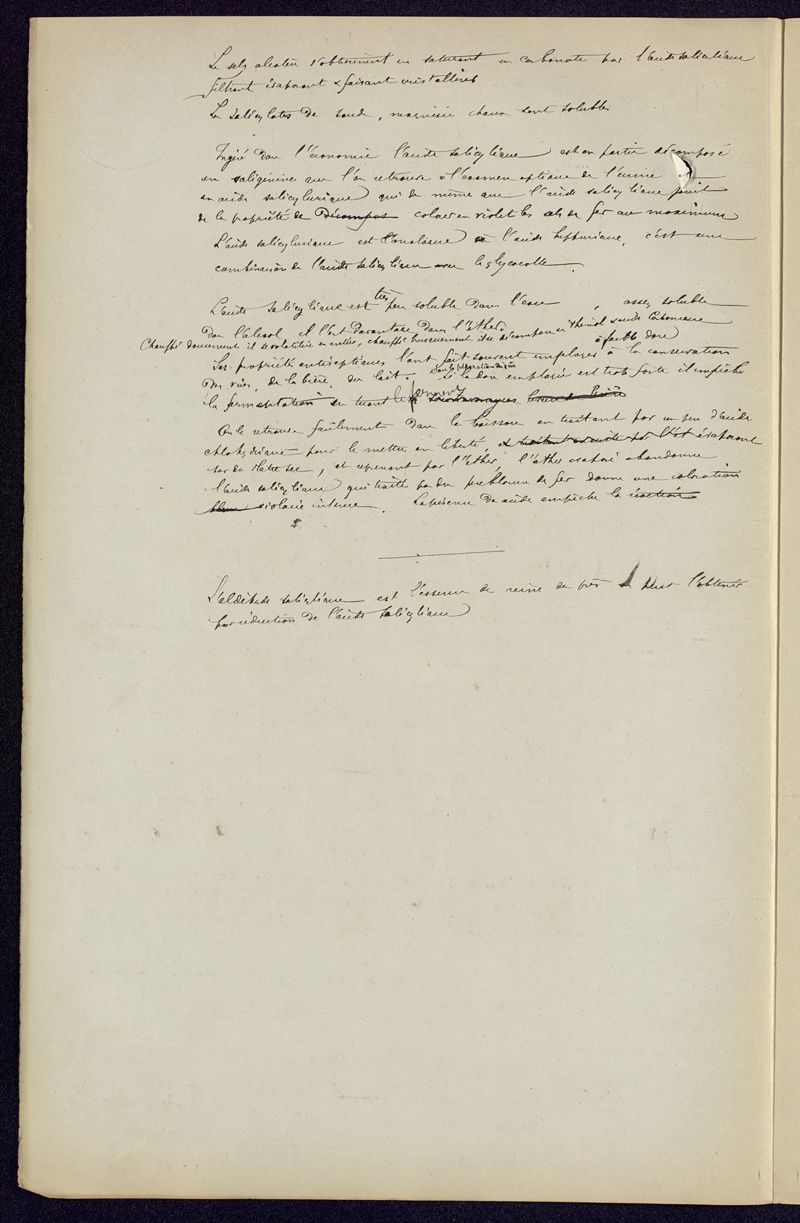 Le sels alcalin s'obtiennent en saturant un carbonate par l'acide salicylique
filtrant évaporant & faisant cristalliser
Le salicylates de soude, magnésie chaux sont solubles
Ingéré dans l'économie l'acide salicylique est en partie décomposé
en saligénine que l'on retrouve à l'examen optique de l'urine et
en acide salicylurique qui de même que l'acide salicylique jouit
de la propriété de Décompos colorer en violet les sels de fer au maximum
L'acide salicylurique est l'analogue de l'acide hippurique, c'est une
combinaison de l'acide salicylique avec le glycocolle.
L'acide salicylique est très peu soluble dans l'eau, assez soluble
Dans l'alcool et l'est davantage dans l'éther.
Chauffé doucement il se volatilise en entier, chauffé brusquement il se décompose en Phénol & acide Carbonique
Ses propriétés antiseptiques l'ont fait souvent employer à faible dose à la conservation
Des vins, de la bière, du lait. Si la dose employée est trop forte il empêche
la fermentation en tuant les ferments
On le retrouve facilement dans la boisson en traitant par un peu d'acide
chlorhydrique pour le mettre en liberté, & traitant ensuite par l'et évaporant
sur du plâtre sec, et reprenant par l'Ether, l'éther évaporé abandonne
l'acide salicylique qui traité par du perchlorure de fer donne une coloration
bleue violacée intense. La présence de acide empêche la réaction
L'aldéhyde salicylique est l'essence de reine des prés & peut l'obtenir
par réduction de l'acide salicylique